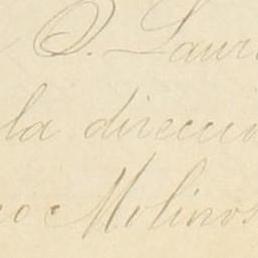 D. Laur
la direcció
Molinos